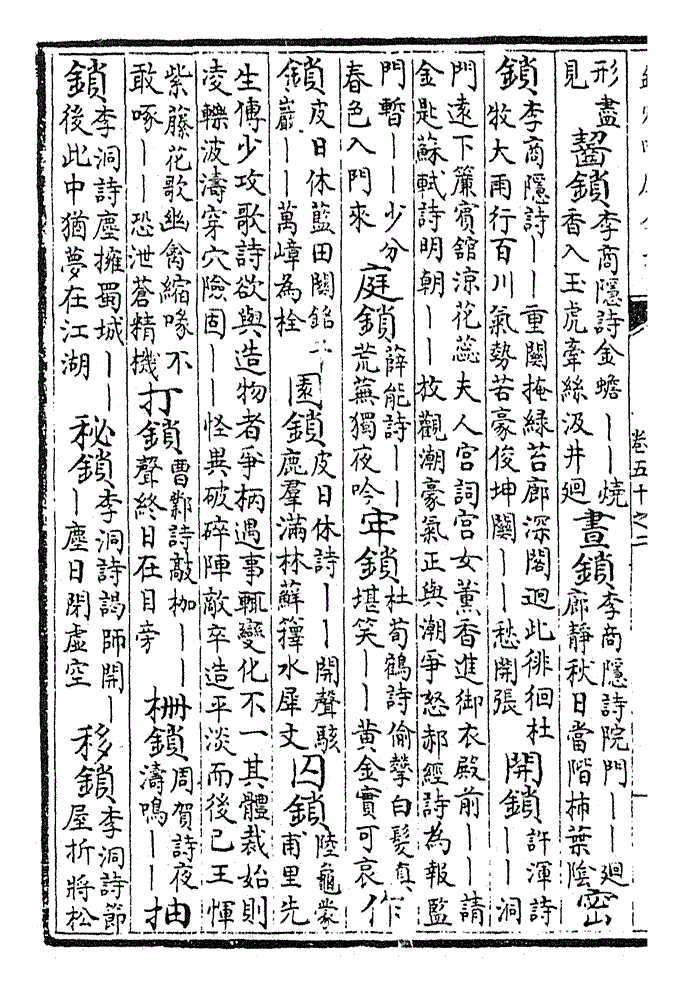 卷五十之二
形盡見 齧鎖 李商隱詩金蟾——燒香入玉虎牽絲汲井廻 晝鎖 李商隱詩院門——廻廊靜秋日當階柿葉陰 密
鎖 李商隱詩——重關掩緑苔廊深閣迥此徘徊杜牧大雨行百川氣勢若豪俊坤關——愁開張 開鎖 許渾詩——洞
門遠下簾賓舘涼花蕊夫人宮詞宮女薰香進御衣殿前——請金匙蘇軾詩明朝——放觀潮豪氣正與潮爭怒郝經詩為報監
門暫——少分春色入門來 庭鎖 薛能詩——荒蕪獨夜吟 牢鎖 杜荀鶴詩偷攀白髮真堪笑——黃金實可哀 作
鎖 皮日休藍田關銘巖——萬嶂為栓 園鎖 皮日休詩——開聲駭鹿羣滿林蘚籜水犀文 囚鎖 陸龜蒙甫里先
生傳少攻歌詩欲與造物者爭柄遇事輒變化不一其體裁始則凌轢波濤穿穴險固——怪異破碎陣敵卒造平淡而後已王惲
紫藤花歌幽禽縮喙不敢啄——恐泄蒼精機 打鎖 曹鄴詩敲枷——聲終日在目旁 柵鎖 周賀詩夜濤鳴—— 抽
鎖 李洞詩塵擁蜀城——後此中猶夢在江湖 秘鎖 李洞詩謁師開——塵日閉虛空 移鎖 李洞詩節屋折將松